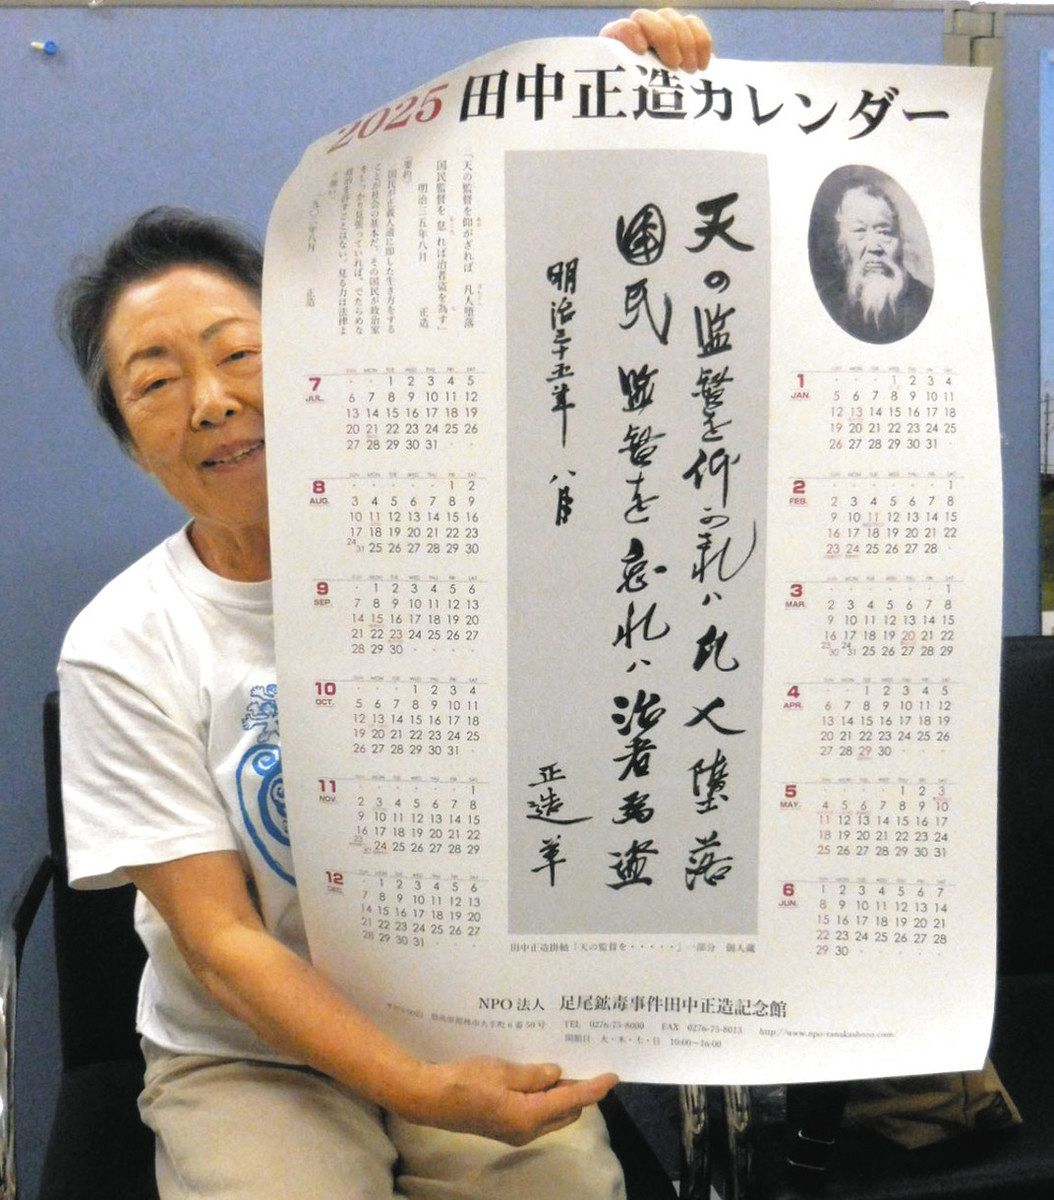 2025 田中正造カレンダー
「天の監督を仰がざれば 凡人堕落
国民監督を怠れば治者盗を為す」
明治三五年八月 正造
(要約)
国民が正義人道に即した生き方をする
ことが社会の基本だ。その国民が政治家
をしっかり見張っていれば、でたらめな
政治を許すことはない。見る力は法律よ
一九〇二年八月 正造
天の監督を仰がざれハ凡人堕落
國民監督を怠れハ治者為盗
明治三十五年八月
正造 草
1 JAN.
SUN MON TUE WED THU FRI SAT
1 2 3 4
5 6 7 8 9 10 11
12 13 14 15 16 17 18
19 20 21 22 23 24 25
26 27 28 29 30 31
2 FEB.
SUN MON TUE WED THU FRI SAT
1
2 3 4 5 6 7 8
9 10 11 12 13 14 15
16 17 18 19 20 21 22
23 24 25 26 27 28
3 MAR.
SUN MON TUE WED THU FRI SAT
1
2 3 4 5 6 7 8
9 10 11 12 13 14 15
16 17 18 19 20 21 22
23/30 24/31 25 26 27 28 29
4 APR.
SUN MON TUE WED THU FRI SAT
1 2 3 4 5
6 7 8 9 10 11 12
13 14 15 16 17 18 19
20 21 22 23 24 25 26
27 28 29 30
5 MAY.
SUN MON TUE WED THU FRI SAT
1 2 3
4 5 6 7 8 9 10
11 12 13 14 15 16 17
18 19 20 21 22 23 24
25 26 27 28 29 30 31
6 JUN.
SUN MON TUE WED THU FRI SAT
1 2 3 4 5 6 7
8 9 10 11 12 13 14
15 16 17 18 19 20 21
22 23 24 25 26 27 28
29 30
7 JUL.
SUN MON TUE WED THU FRI SAT
1 2 3 4 5
6 7 8 9 10 11 12
13 14 15 16 17 18 19
20 21 22 23 24 25 26
27 28 29 30 31
8 AUG.
SUN MON TUE WED THU FRI SAT
1 2
3 4 5 6 7 8 9
10 11 12 13 14 15 16
17 18 19 20 21 22 23
24/31 25 26 27 28 29 30
9 SEP.
SUN MON TUE WED THU FRI SAT
1 2 3 4 5 6
7 8 9 10 11 12 13
14 15 16 17 18 19 20
21 22 23 24 25 26 27
28 29 30
10 OCT.
SUN MON TUE WED THU FRI SAT
1 2 3 4
5 6 7 8 9 10 11
12 13 14 15 16 17 18
19 20 21 22 23 24 25
26 27 28 29 30 31
11 NOV.
SUN MON TUE WED THU FRI SAT
1
2 3 4 5 6 7 8
9 10 11 12 13 14 15
16 17 18 19 20 21 22
23/30 24 25 26 27 28 29
12 DEC.
SUN MON TUE WED THU FRI SAT
1 2 3 4 5 6
7 8 9 10 11 12 13
14 15 16 17 18 19 20
21 22 23 24 25 26 27
28 29 30 31
田中正造掛軸「天の監督を・・・・・」一部分 個人蔵
NPO法人 足尾鉱毒事件田中正造記念館
館林市大手町6番50号 TEL 0276-75-8000 FAX 0276-75-8013
開館日 火・木・土・日 10:00~16:00